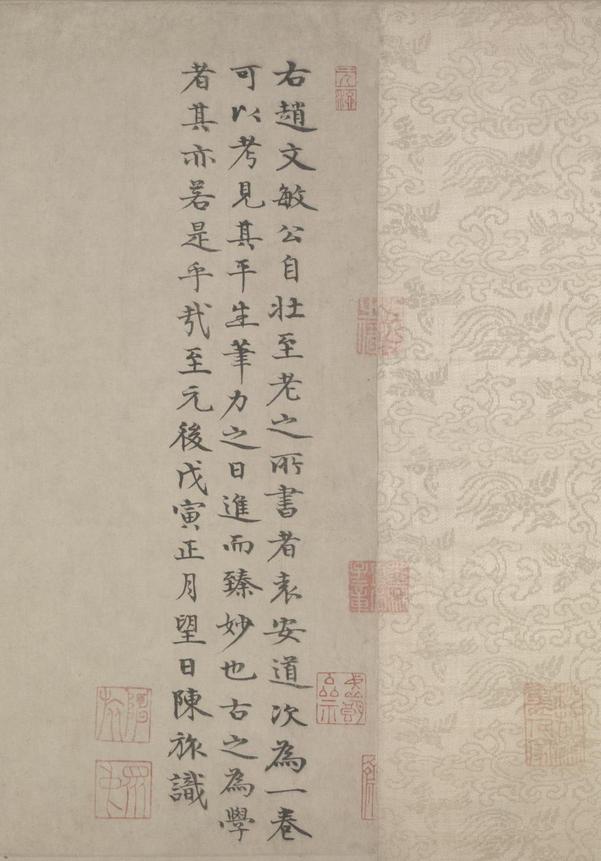 右趙文敏公自壯至老之所書者袁安道次為一卷
可以考見其平生筆力之日進而臻妙也古之為學
者其亦若是乎哉至元後戊寅正月望日陳旅識